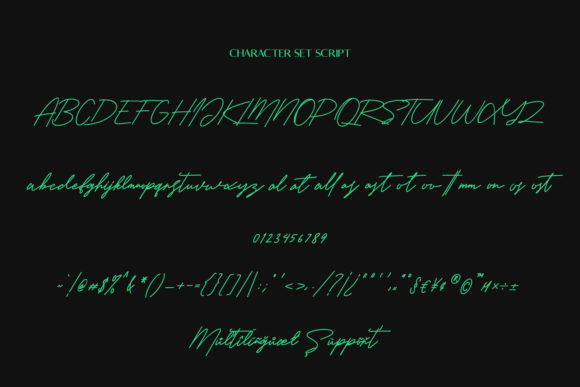 CHARACTER SET SCRIPT
ABCDEFGHIJKLMNOPQRSTUVWXYZ
abcdefghijklmnopqrstuvwxyz al at all as ast ot ov tt mm on os ost
0123456789
~`!@#$%^&*()_+-={}[]|\:;"'<>,./?
Multilingual Support